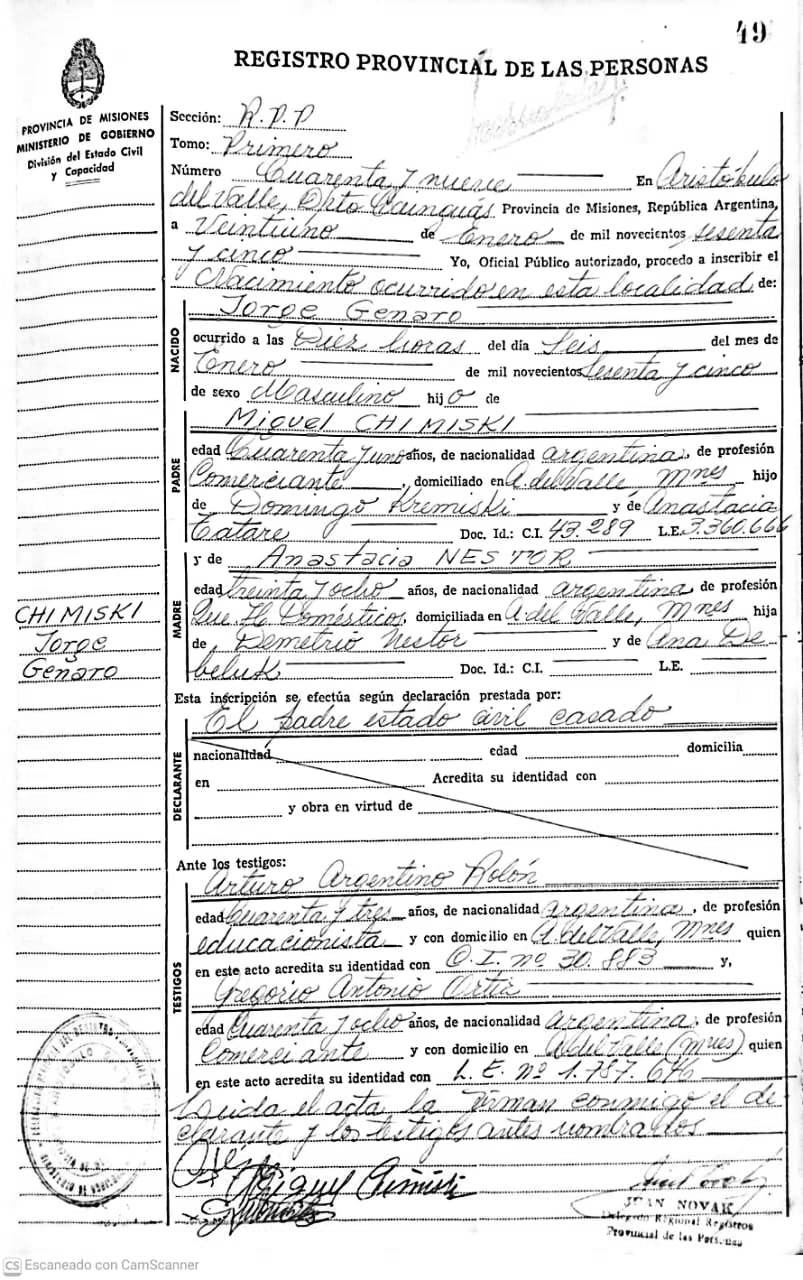 49
REGISTRO PROVINCIAL DE LAS PERSONAS
PROVINCIA DE MISIONES
MINISTERIO DE GOBIERNO
División del Estado Civil
y Capacidad
Sección: R.P.P
Tomo: Primero
Número Cuarenta y nueve En Aristóbulo
del Valle, Dpto Cainguás Provincia de Misiones, República Argentina,
a Veintiuno de Enero de mil novecientos sesenta
y cinco Yo, Oficial Público autorizado, procedo a inscribir el
Nacimiento ocurrido en esta localidad de:
NACIDO
Jorge Genaro
ocurrido a las Diez horas del día Seis del mes de
Enero de mil novecientos Sesenta y cinco
de sexo Masculino hijo de
PADRE
Miguel CHIMISKI
edad Cuarenta y uno años, de nacionalidad argentina, de profesión
Comerciante, domiciliado en A. del Valle, Mnes hijo
de Domingo Kremiski y de Anastacia
Tatare Doc. Id.: C.I. 43.289 L.E. 3.360.666
MADRE
y de Anastacia NESTOR
edad treinta y ocho años, de nacionalidad argentina, de profesión
Que H. Domésticos, domiciliada en A. del Valle, Mnes hija
de Demetrio Nestor y de Ana De-
beluk Doc. Id.: C.I. L.E.
CHIMISKI
Jorge
Genaro
Esta inscripción se efectúa según declaración prestada por:
El padre estado civil casado
DECLARANTE
nacionalidad edad domicilia
en Acredita su identidad con
y obra en virtud de
Ante los testigos:
TESTIGOS
Arturo Argentino Rolón
edad Cuarenta y tres años, de nacionalidad argentina, de profesión
educacionista y con domicilio en A. del Valle, Mnes quien
en este acto acredita su identidad con C.I. nº 30.883 y,
Gregorio Antonio Ortiz
edad Cuarenta y ocho años, de nacionalidad Argentina, de profesión
Comerciante y con domicilio en A. del Valle (Mnes) quien
en este acto acredita su identidad con L.E. Nº 1.787.646
Leida el acta, la firman conmigo el de-
clarante y los testigos antes nombrados
Miguel Cimiski
JUAN NOVAK
Delegado Regional Registros
Provincial de las Personas
CS Escaneado con CamScanner